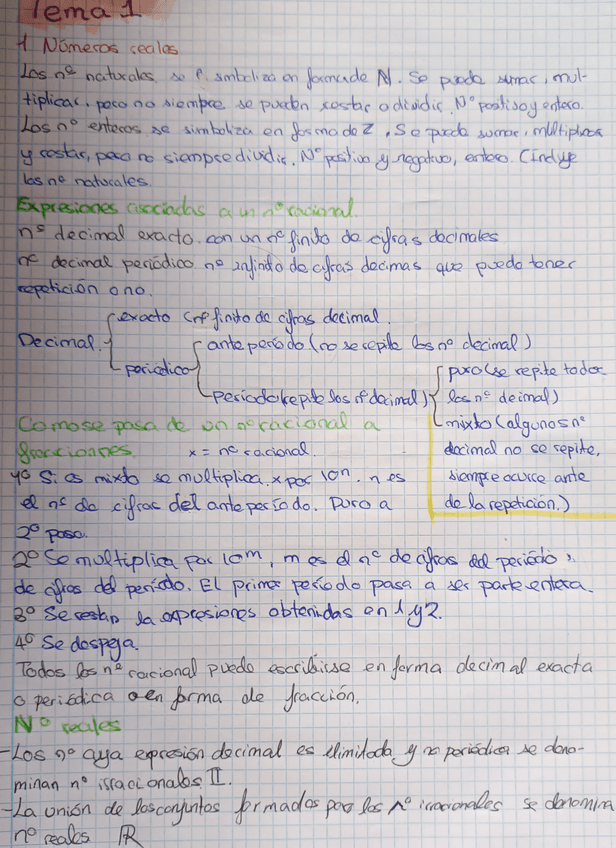 Tema 1
1 Números reales
Los nº naturales se simboliza en forma de N. Se puede sumar, mul-
tiplicar, pero no siempre se pueden restar o dividir. Nº positivo y entero.
Los nº enteros se simboliza en forma de Z, Se puede sumar, multiplicar
y restar, pero no siempre dividir. Nº positivo y negativo, entero. Cindye
los nº naturales.
Expresiones asociadas a un nº racional.
nº decimal exacto. con un nº finito de cifras decimales
nº decimal periódico nº infinito de cifras decimas que puede tener
repetición o no.
exacto (nº finito de cifras decimal.
Decimal. periódico
ante período (no se repite los nº decimal)
período (repite los nº decimal)
puro (se repite todos
los nº deimal)
mixto (algunos nº
decimal no se repite,
siempre ocurre ante
de la repetición.)
Como se pasa de un nº racional a
fracciones. x = nº racional.
1º Si es mixto se multiplica x por 10n. n es
el nº de cifras del ante período. Puro a
2º paso.
2º Se multiplica por 10m, m es el nº de cifras del período,
de cifras del período. El primer período pasa a ser parte entera.
3º Se restan la expresiones obtenidas en 1 y 2.
4º Se despeja.
Todos los nº racional puede escribirse en forma decimal exacta
o periódica o en forma de fracción.
Nº reales
-Los nº cuya expresión decimal es ilimitada y no periódica se deno-
minan nº irracionales II.
-La unión de los conjuntos formados por los nº irracionales se denomina
nº reales ℝ